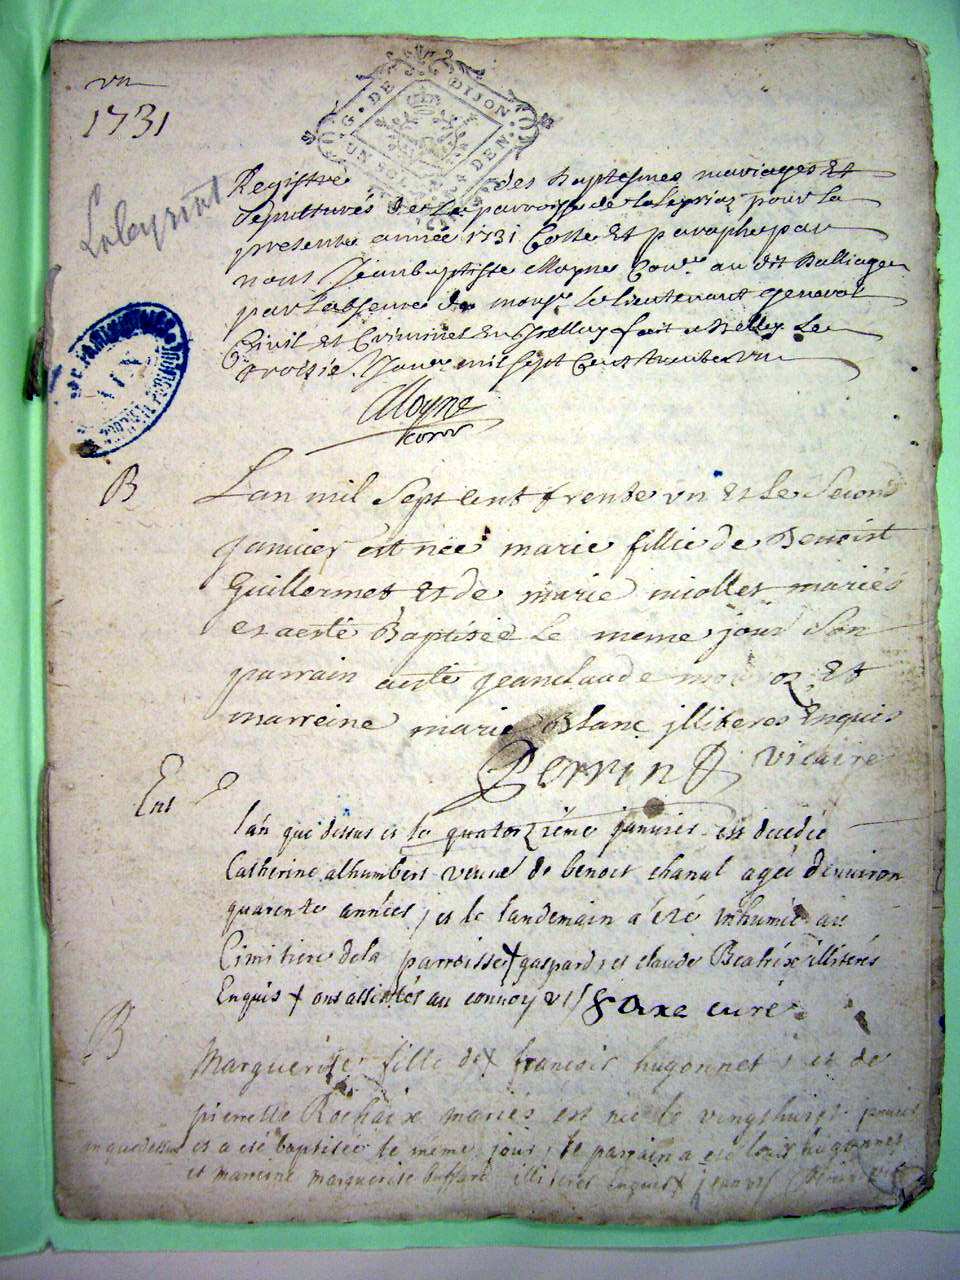 vn
1731
G. DE DIJON.
UN SOL 4 DEN.
Registre des Baptesmes mariages Et
Sepultures de La parroisse de pour La
presente année 1731 Cotté Et paraphé par
nous Jean baptiste Moyne Conr. au dit Balliage
par Labsence de monsr. le lieutenant general
Civil et Criminel En Belley fait a Belley Le
troisie. Janvr. mil sept Cent trente vn
Moyne
AIN
B
L'an mil sept cent trente vn et le second
janvier est née marie fillie de Benoist
Guillermet et de marie miollet mariés
et a esté Baptisée le meme jour son
parrain a esté jean claude Et
marreine marie Blanc illiteres Enquis
Perrin vicaire
Ent
l'an que dessus et le quatorzième janvier est decedée
Catherine alhumbert veuve de benoit chanal agée d'environ
quarente années, et le landemain a été inhumée au
Cimitiere de la parroisse gaspard, et claude Beatrix illiterés
Enquis ont assistés au convoy curé
B
Marguerite fille de françois hugonnet, et de
pierrette Rochaix mariés est née le vingt huict janvier
an que dessus et a été baptisée le même jour, le parrain a été hugonnet
et marreine marguerite illiterés enquis